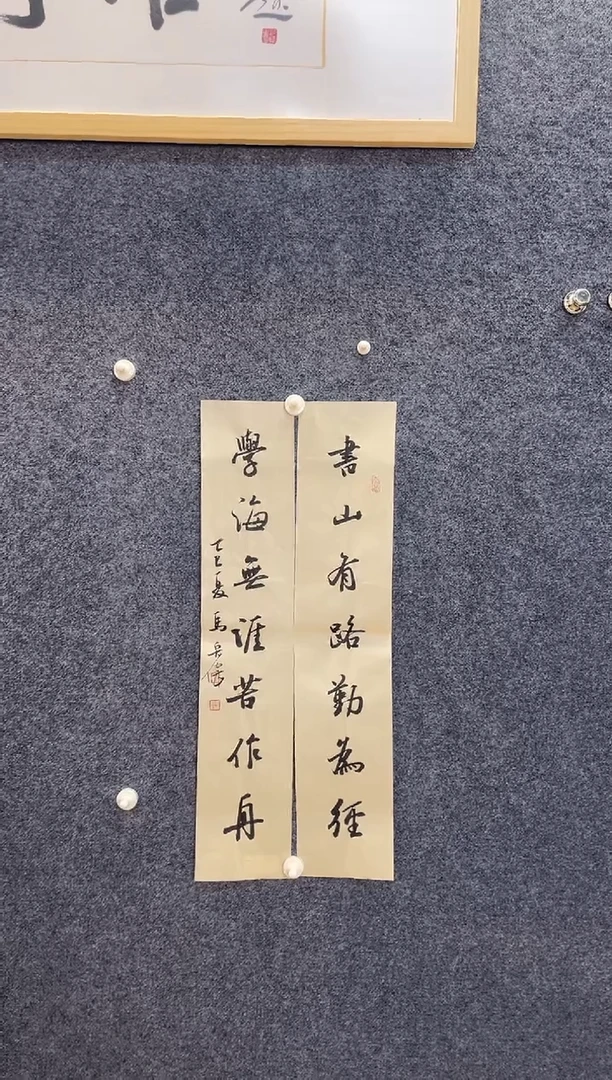 書山有路勤為徑
學海無涯苦作舟
乙巳夏馬